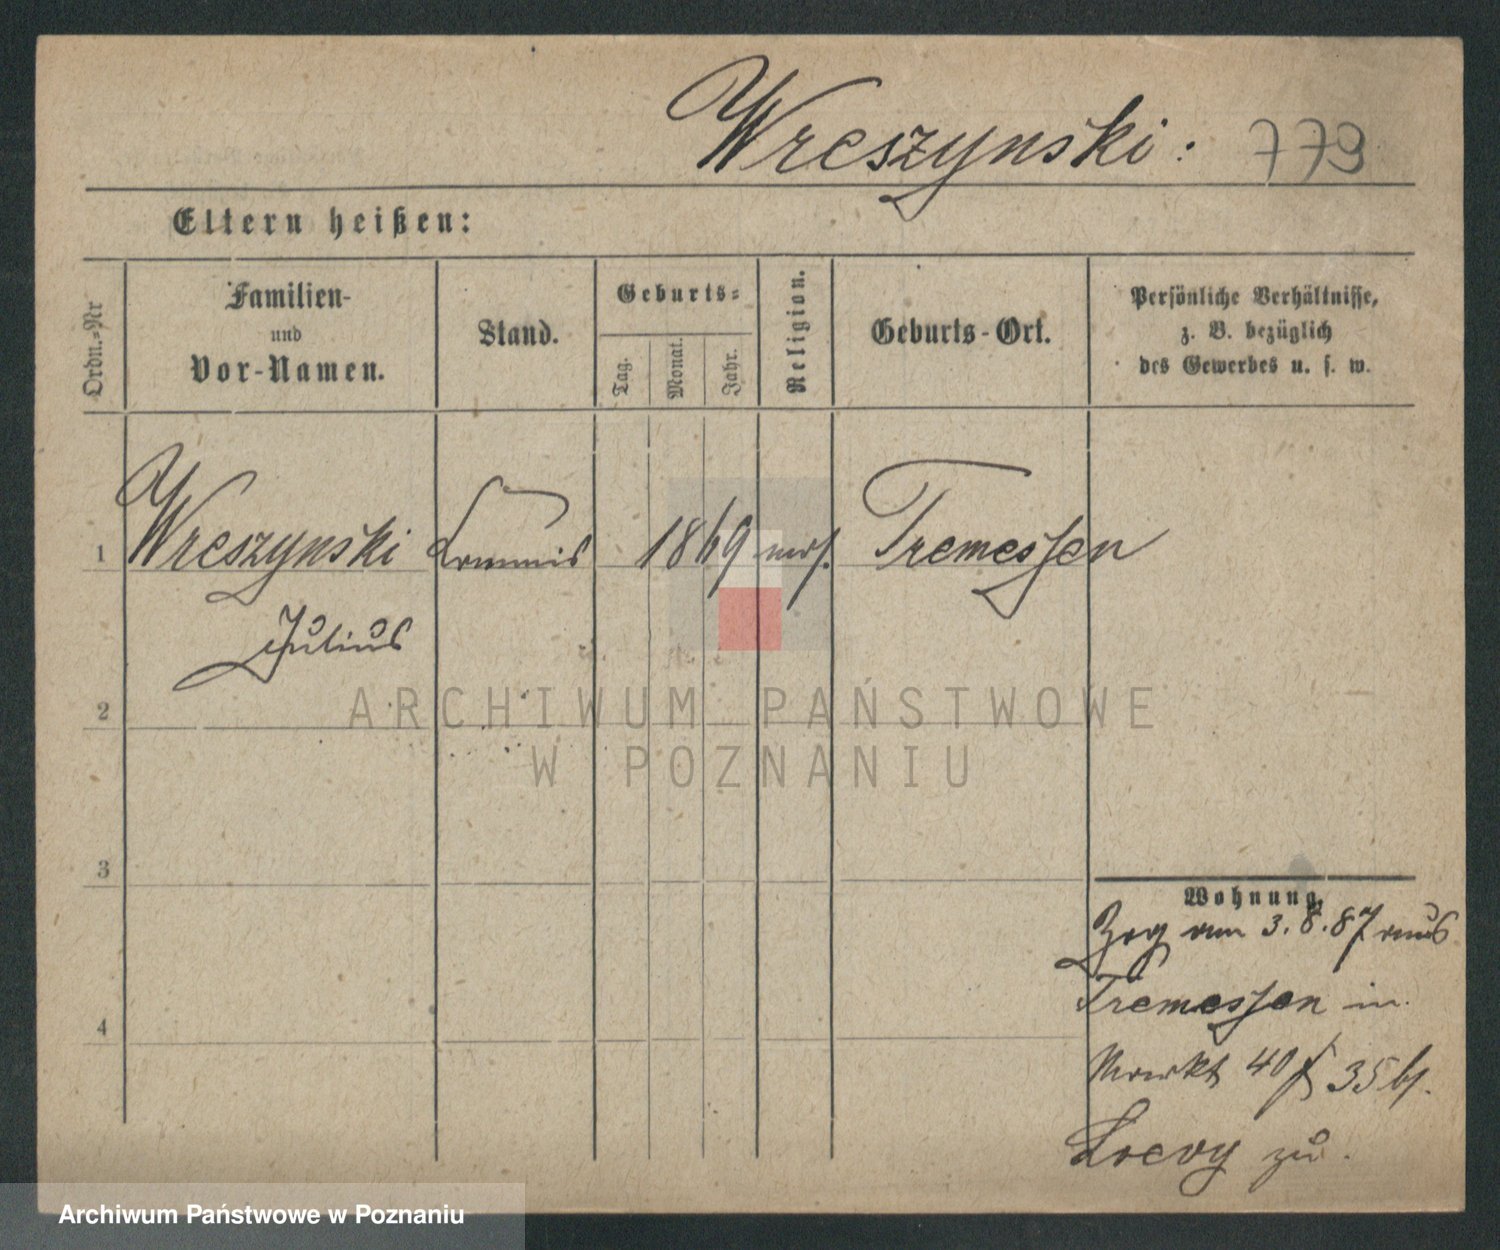 Wreszynski: 779
Eltern heißen:
Ordn.-Nr
Familien-
und
Vor-Namen.
Stand.
Geburts-
Tag.
Monat.
Jahr.
Religion.
Geburts-Ort.
Persönliche Verhältnisse,
z. B. bezüglich
des Gewerbes u. s. w.
1 Wreszynski Commis 1869 mos. Tremessen
Julius
2
3
4
Wohnung.
Zog am 3.8.87 aus
Tremessen in
Markt 40 35 b/.
Loevy zu.
ARCHIWUM PAŃSTWOWE
W POZNANIU
Archiwum Państwowe w Poznaniu